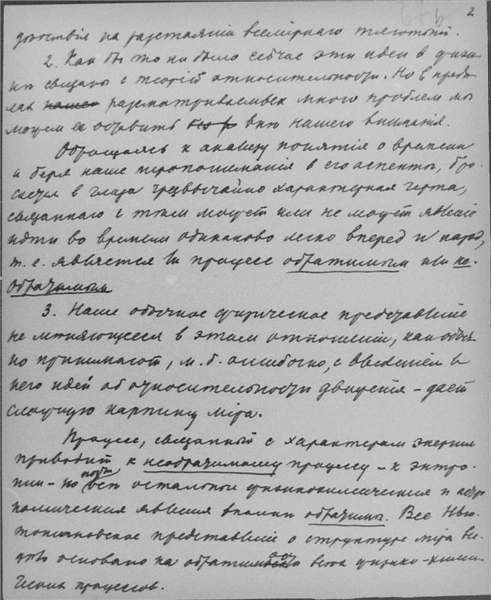 2
действия на расстоянии всемирного тяготения.
2. Как бы то ни было сейчас эти идеи в физи-
ке связаны с теорией относительности. Но в преде-
лах рассматриваемых мною проблем мы
можем ее оставить вне нашего внимания.
Обращаясь к анализу понятия о времени
и беря наше в его аспекты, бро-
сается в глаза чрезвычайно характерная черта,
связанная с тем может или не может явление
идти во времени одинаково легко вперед и назад,
т. е. является ли процесс обратимым или не-
обратимым
3. Наше обычное физическое представление
не меняющееся в этом отношении, как обыч-
но принимают, м. б. ошибочно, с введением в
него идей об относительности движения – дает
следующую картину мира.
Процесс, связанный с характером энергии
приводит к необратимому процессу – к энтро-
пии – но почти все остальные физикохимические и астро-
номические явления вполне обратимы. Все Нью-
тоновское представление о структуре мира
основано на обратимости всех физико-хими-
ческих процессов.